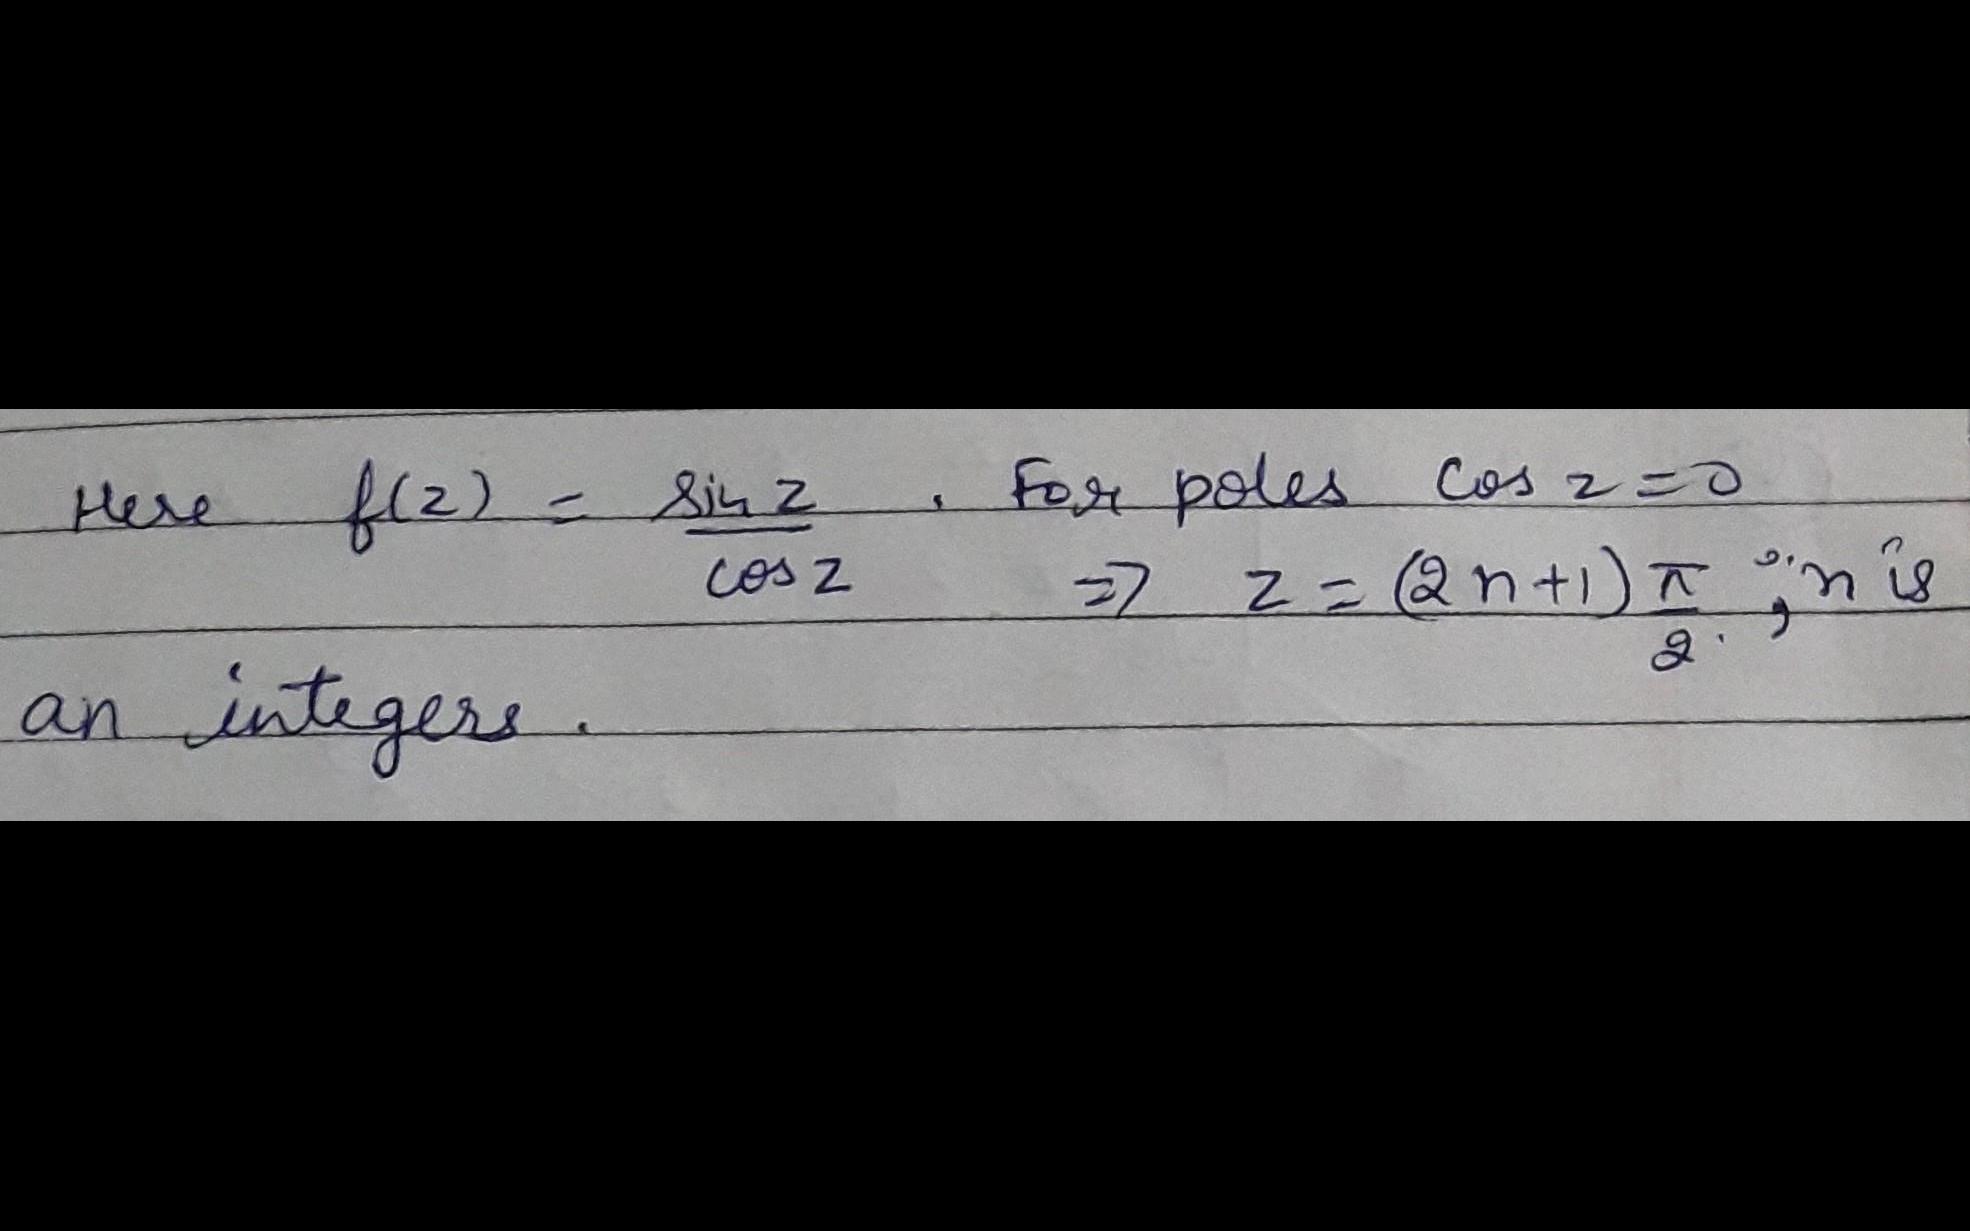 Here f(z) = sin z / cos z . For poles cos z = 0
⇒ z = (2n+1) π/2 ; n is
an integers.